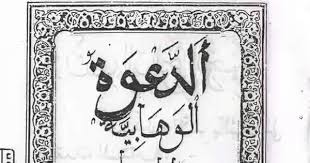 الدَّعْوَة
الوهابية